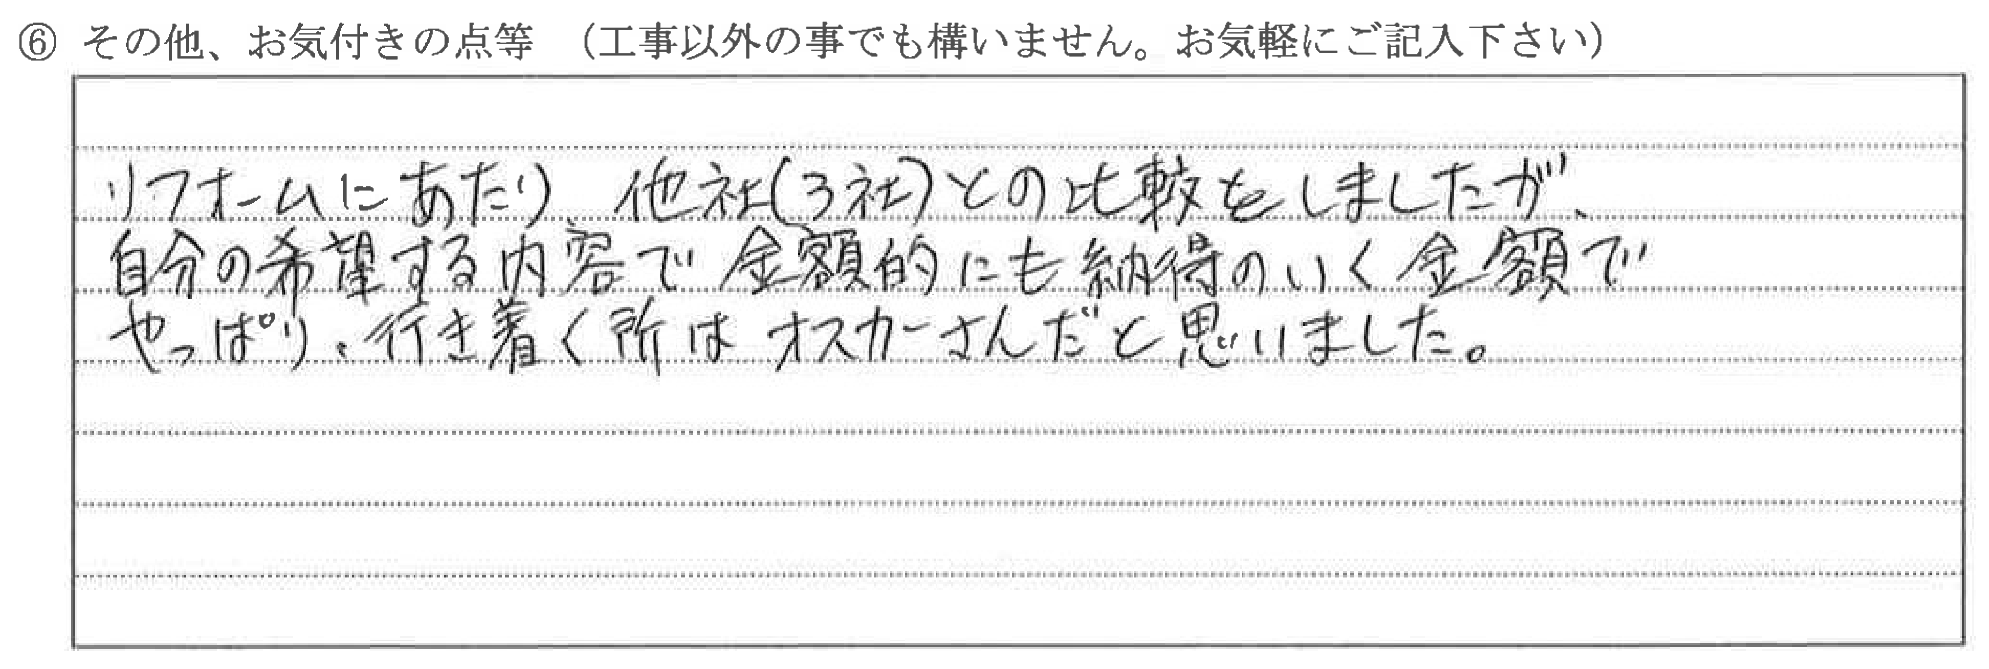 ⑥ その他、お気付きの点等 （工事以外の事でも構いません。お気軽にご記入下さい）
リフォームにあたり、他社(3社)との比較をしましたが、
自分の希望する内容で金額的にも納得のいく金額で
やっぱり、行き着く所はオスカーさんだと思いました。